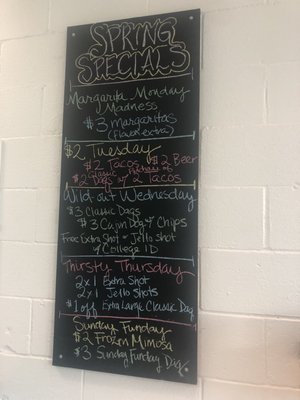 SPRING
SPECIALS
Margarita Monday
Madness
$3 margaritas
(flavor extra)
$2 Tuesday
$2 Tacos $2 Beer
$2 Classic Dags w/ Purchase of 2 Tacos
Wild out Wednesday
$3 Classic Dags
$3 Cajun Dag & Chips
Free Extra Shot or Jello Shot
w/ College ID
Thirsty Thursday
2 x 1 Extra Shot
2 x 1 Jello Shots
$1 off Extra Large Classic Dag
Sunday Funday
$2 Frozen Mimosa
$3 Sunday Funday Dag